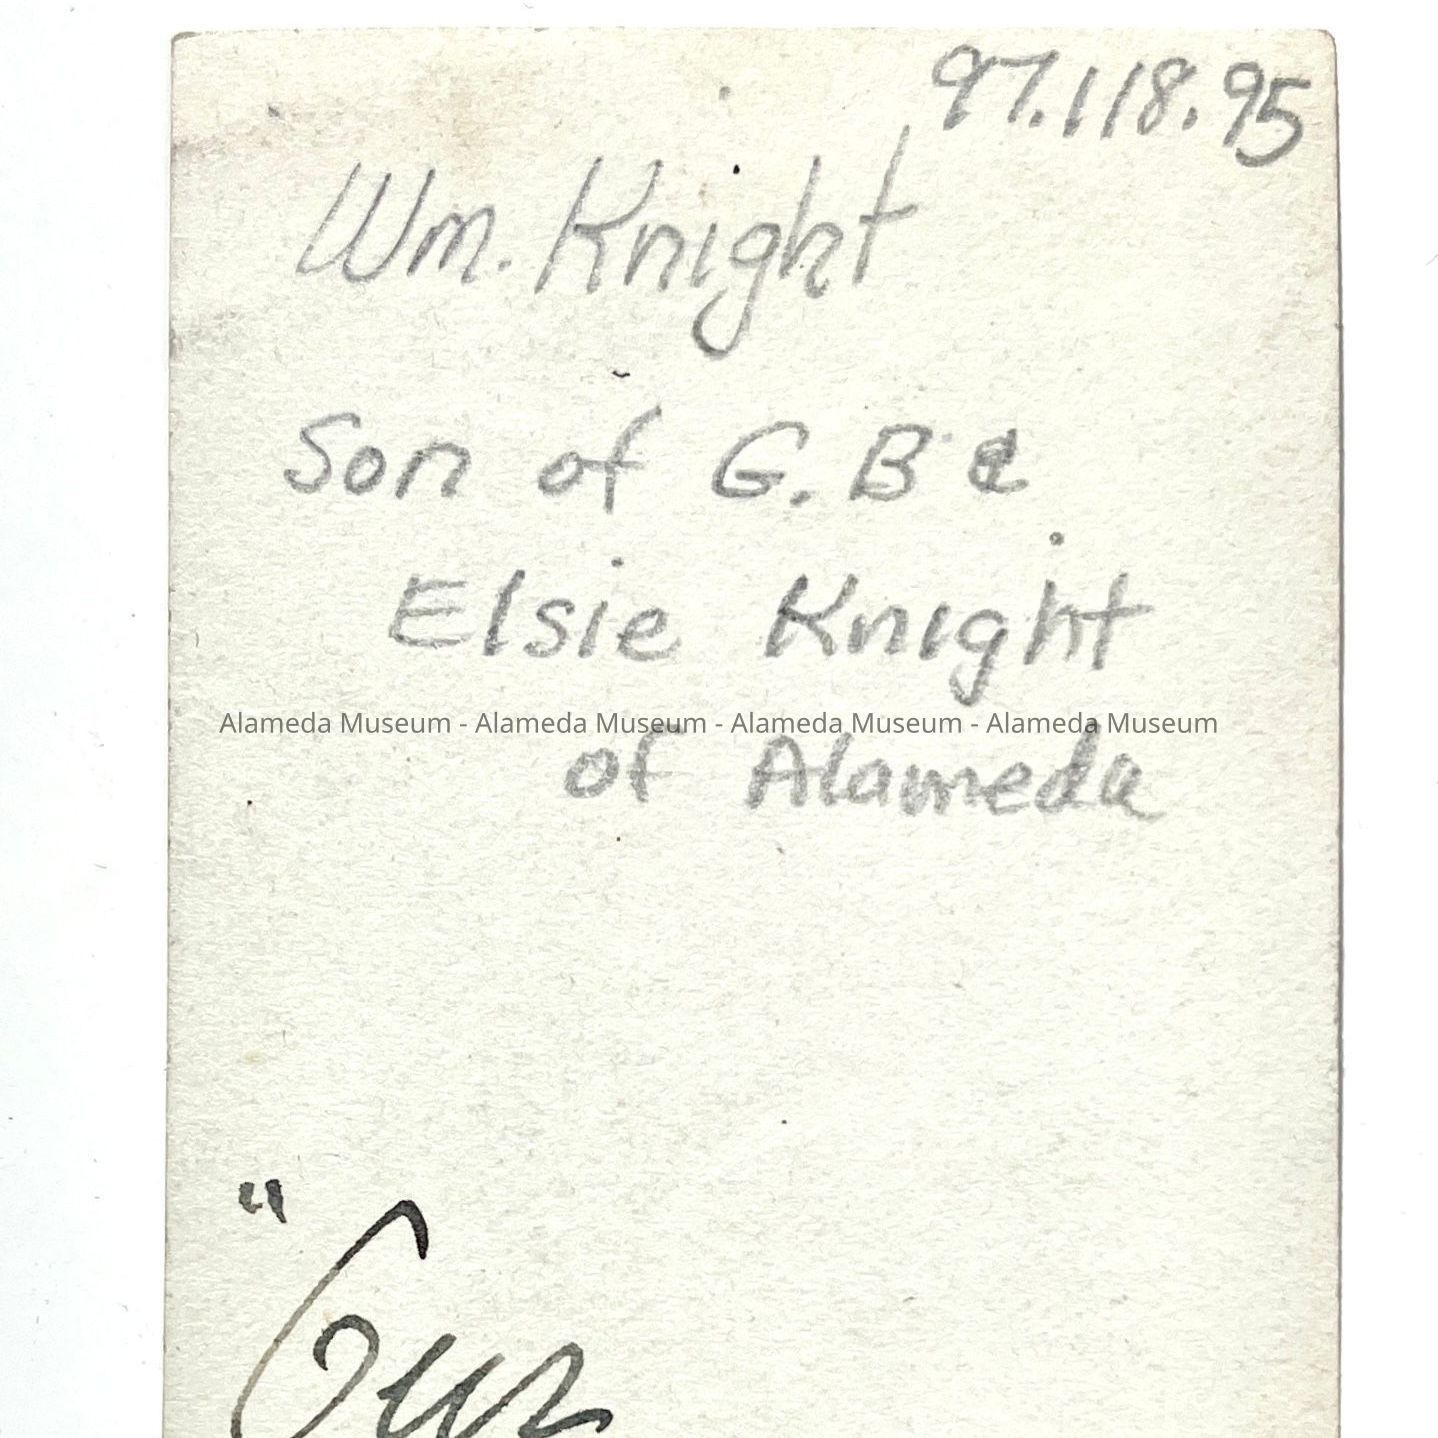 97.118.95
Wm. Knight
Son of G. B &
Elsie Knight
Alameda Museum - Alameda Museum - Alameda Museum - Alameda Museum
of Alameda
"Our